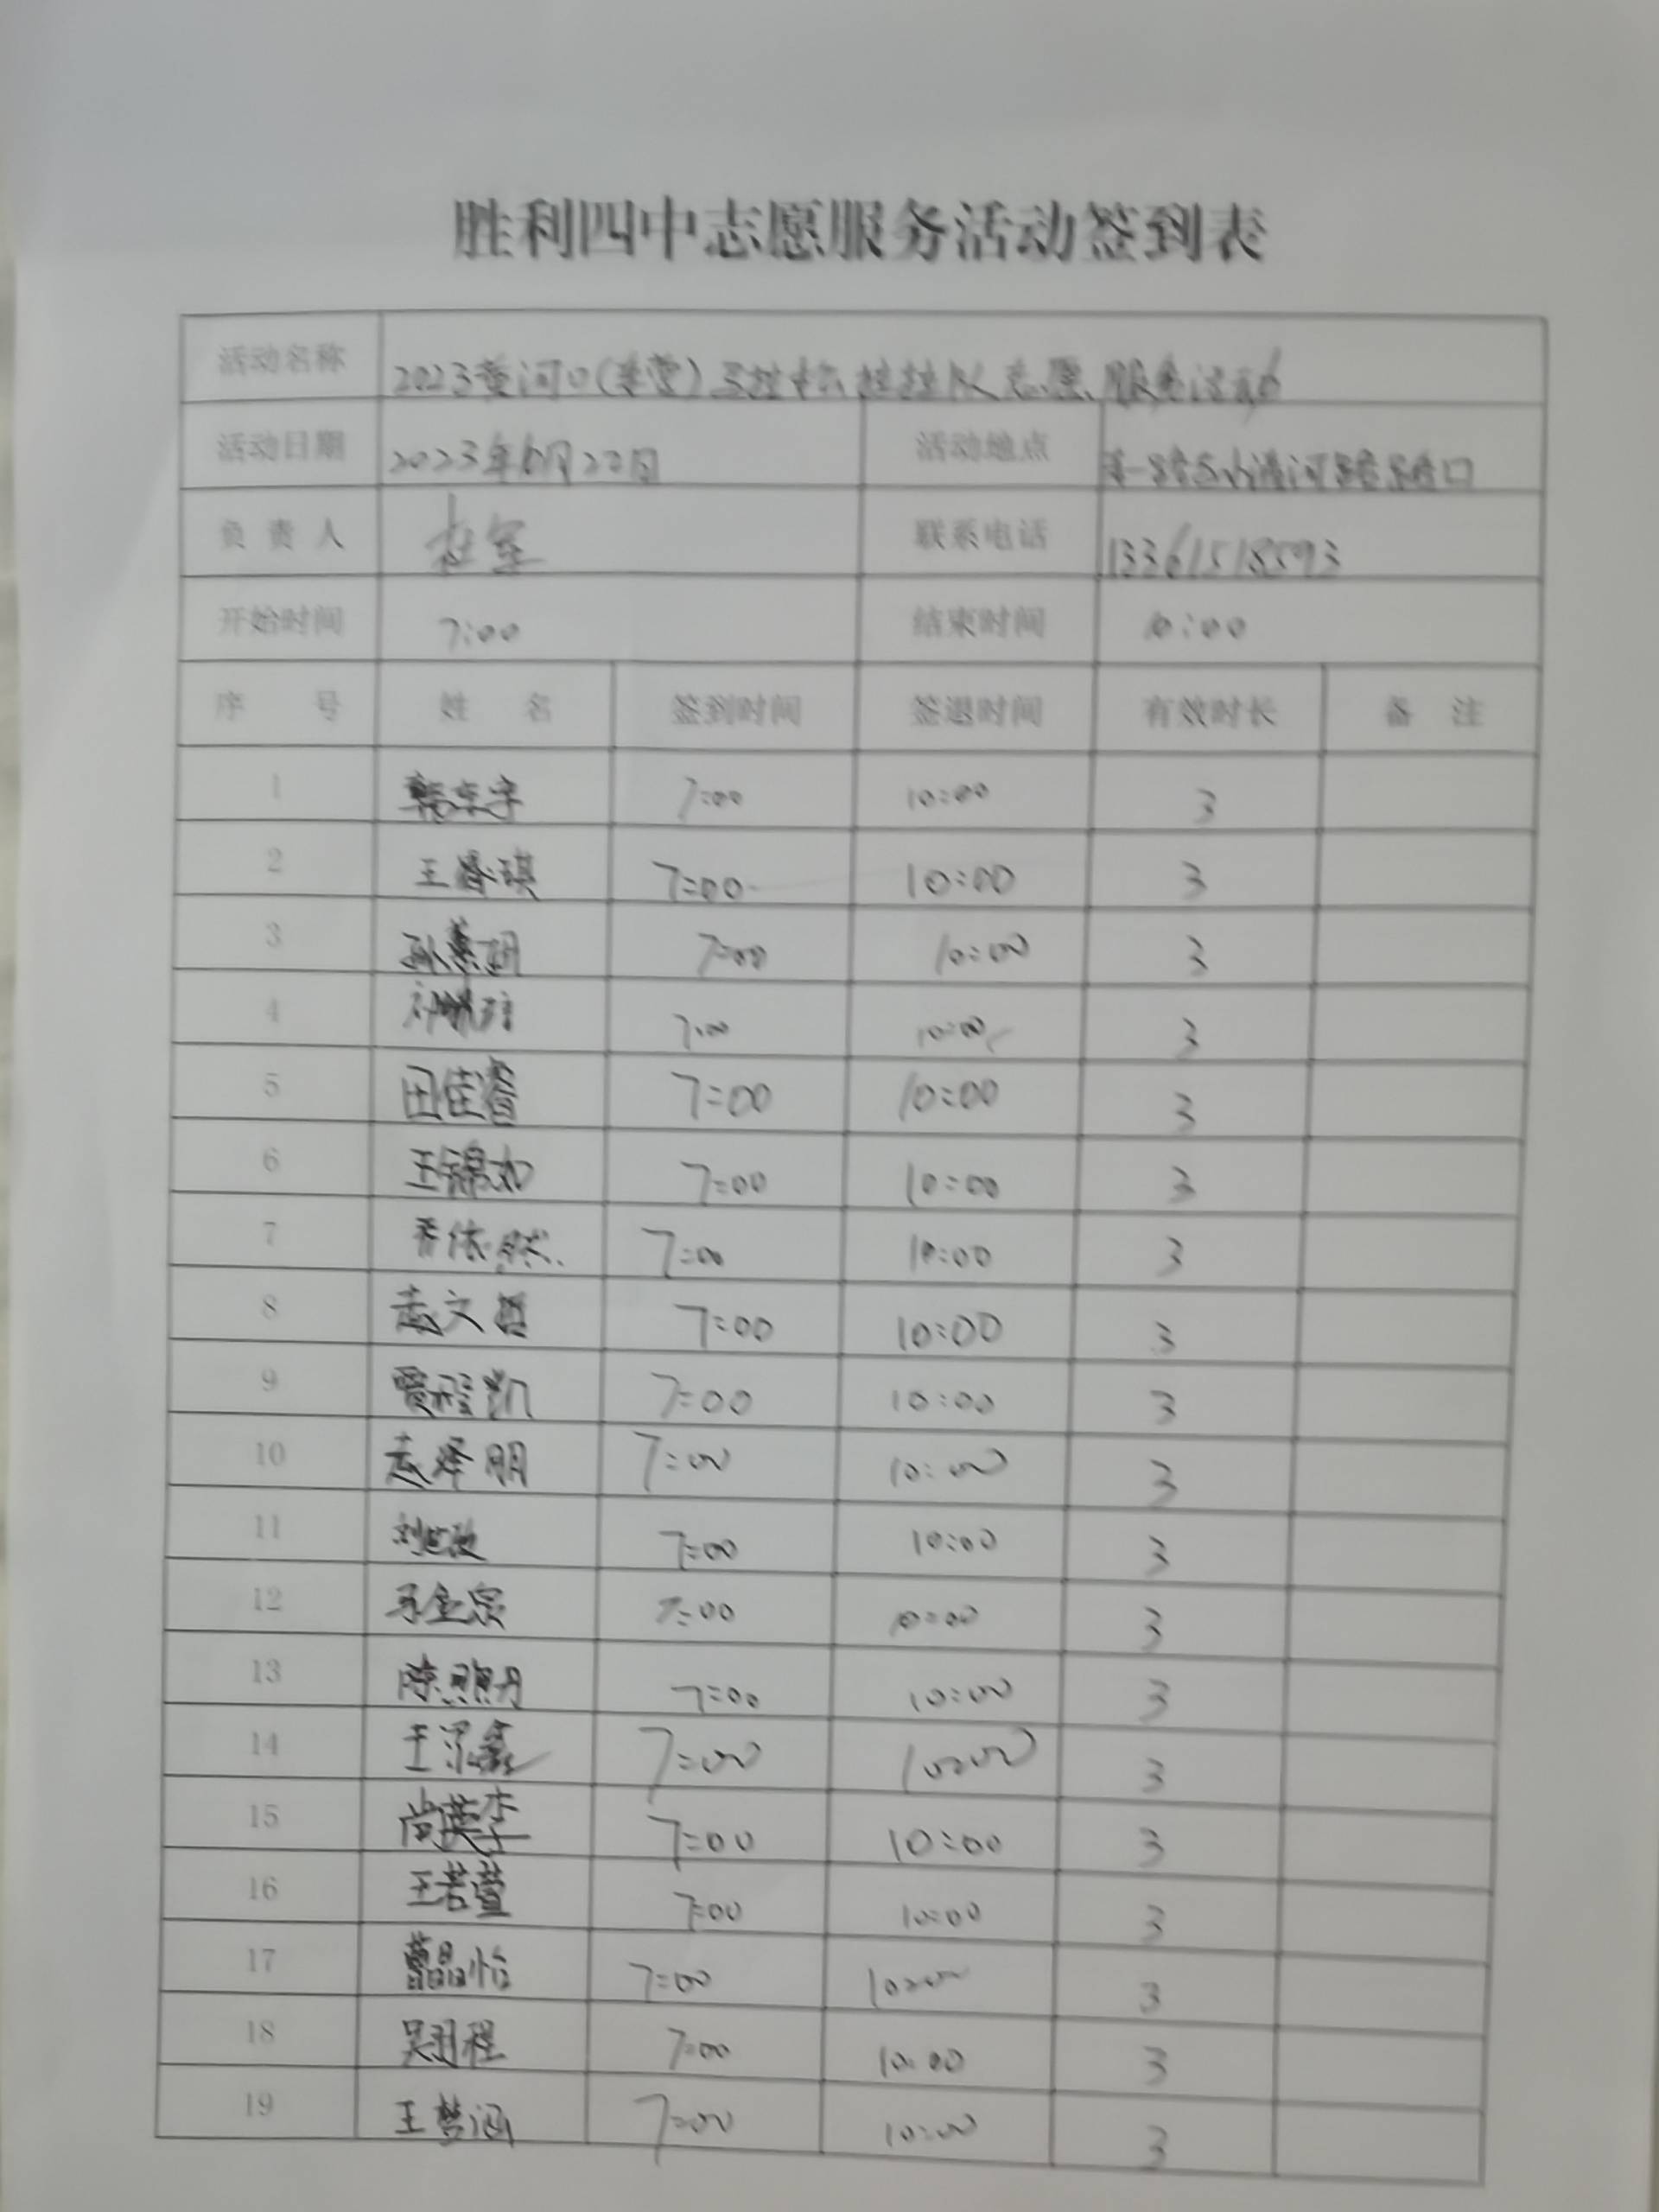 胜利四中志愿服务活动签到表
活动名称 2023黄河口(东营)马拉松拉拉队志愿服务活动
活动日期 2023年6月22日 活动地点 路口
负责人 联系电话 13361518593
开始时间 7:00 结束时间 10:00
序号 姓名 签到时间 签退时间 有效时长 备注
1 韩东宇 7:00 10:00 3
2 王睿琪 7:00 10:00 3
3 孙 7:00 10:00 3
4 7:00 10:00 3
5 田佳睿 7:00 10:00 3
6 王锦如 7:00 10:00 3
7 乔依然 7:00 10:00 3
8 赵文哲 7:00 10:00 3
9 贾程凯 7:00 10:00 3
10 赵泽朋 7:00 10:00 3
11 刘世 7:00 10:00 3
12 金宗 7:00 10:00 3
13 陈 丹 7:00 10:00 3
14 王 7:00 10:00 3
15 尚英李 7:00 10:00 3
16 王若萱 7:00 10:00 3
17 曹晶怡 7:00 10:00 3
18 吴羽程 7:00 10:00 3
19 王梦涵 7:00 10:00 3